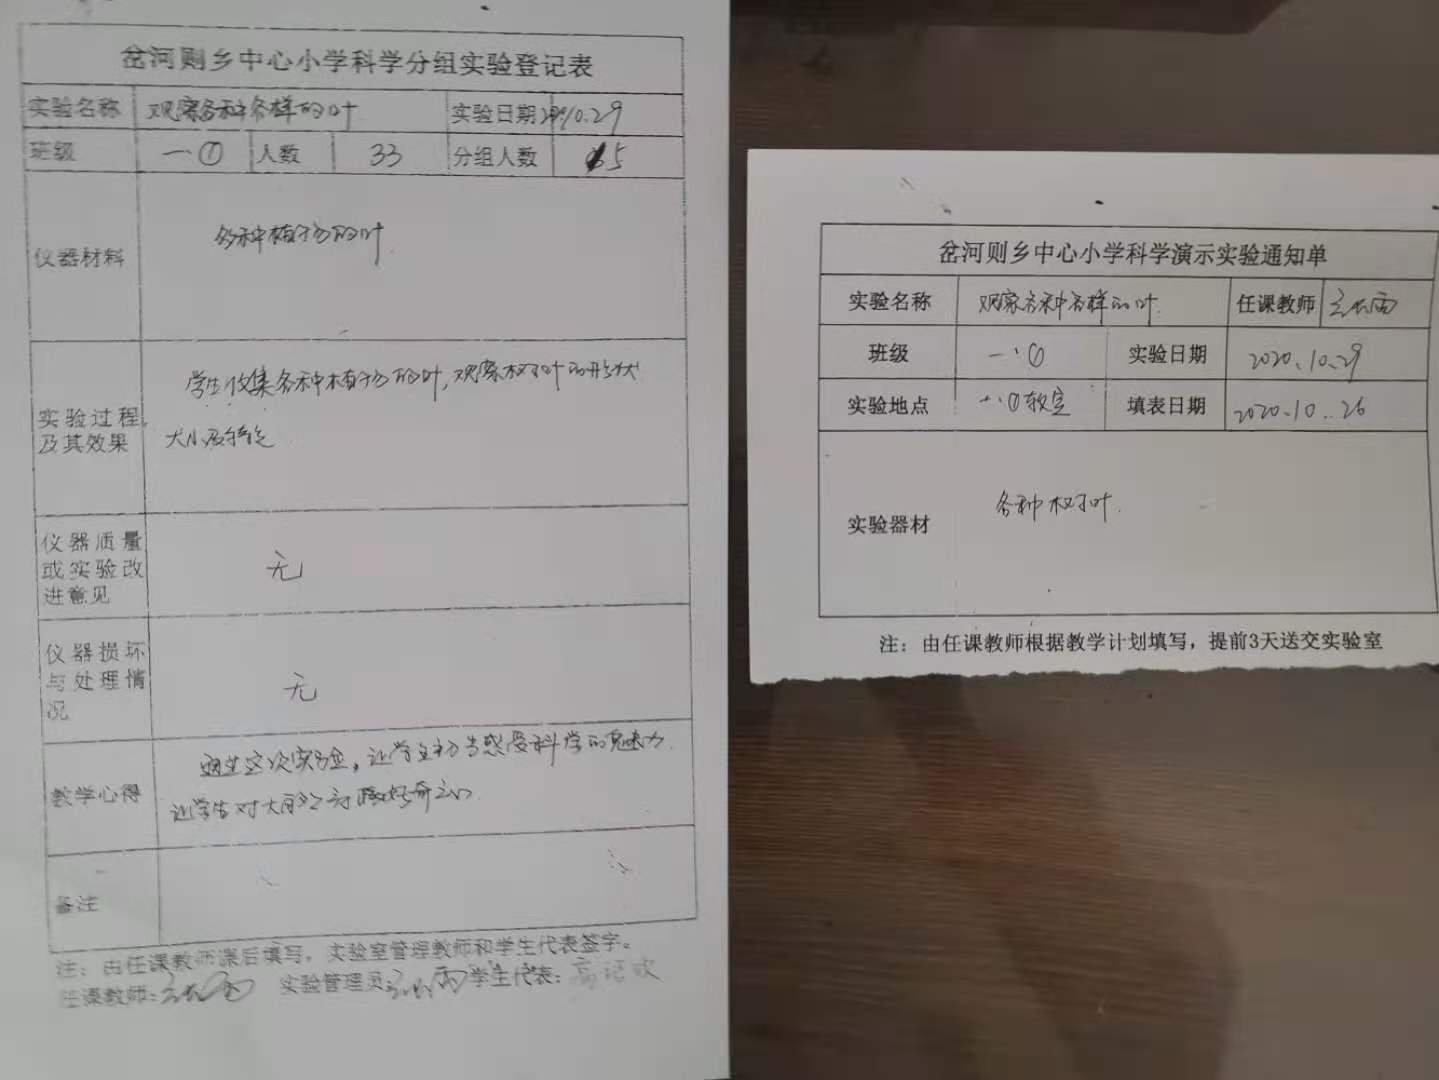 岔河则乡中心小学科学分组实验登记表
实验名称 观察各种各样的叶 实验日期 10.29
班级 一① 人数 33 分组人数 5
仪器材料 各种植物的叶
实验过程及其效果
学生收集各种植物的叶,观察树叶的形状
大小及特论
仪器质量或实验改进意见 无
仪器损坏与处理情况 无
教学心得
通过这次实验,让学生初步感受科学的魅力
让学生对大自然
备注
注:由任课教师课后填写,实验室管理教师和学生代表签字。
任课教师: 实验管理员 学生代表:
岔河则乡中心小学科学演示实验通知单
实验名称 观察各种各样的叶 任课教师
班级 一.① 实验日期 2020.10.29
实验地点 一.①教室 填表日期 2020.10.26
实验器材 各种树叶.
注:由任课教师根据教学计划填写,提前3天送交实验室